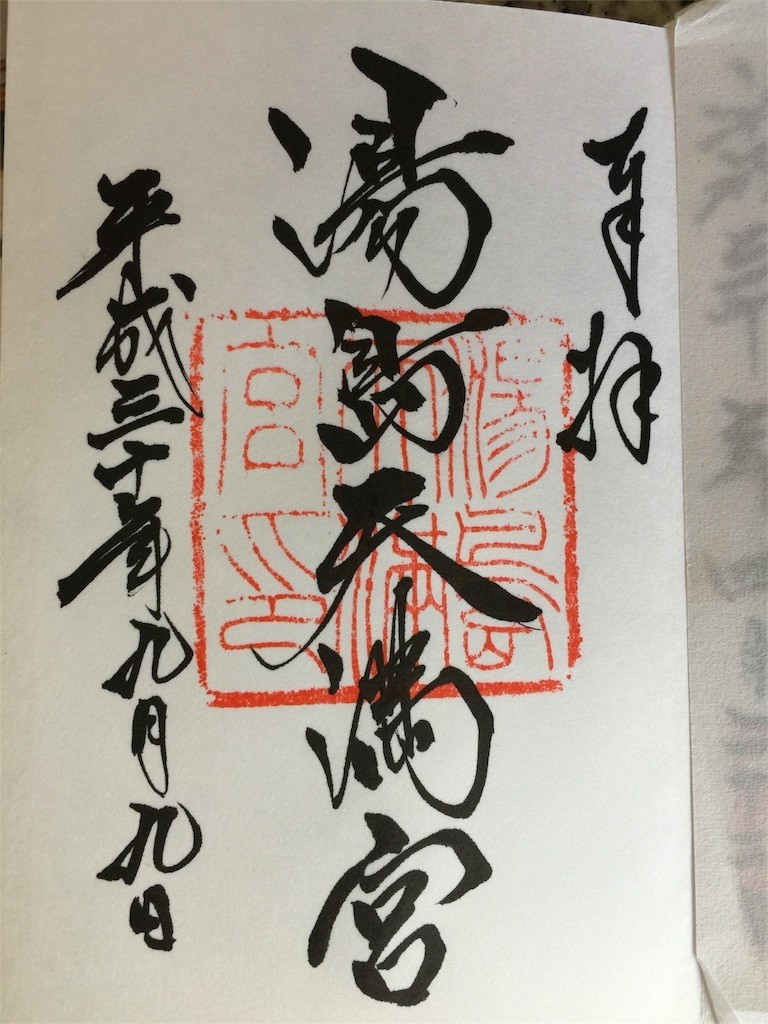 奉拝
湯島天満宮
平成三十年九月九日
湯島天満宮印